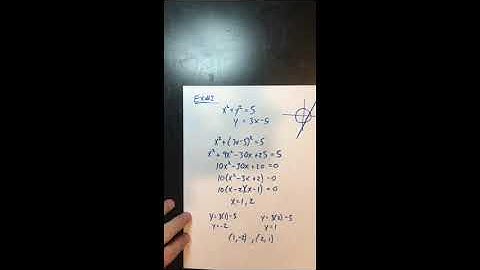 Ex#3
x² + y² = 5
y = 3x - 5
x² + (3x-5)² = 5
x² + 9x² - 30x + 25 = 5
10x² - 30x + 20 = 0
10(x² - 3x + 2) = 0
10(x-2)(x-1) = 0
x = 1, 2
y = 3(1) - 5 y = 3(2) - 5
y = -2 y = 1
(1, -2) , (2, 1)